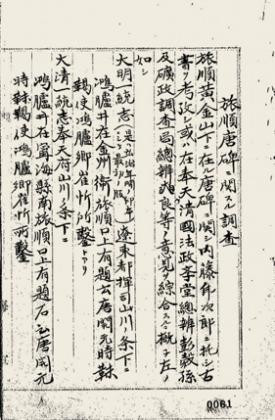 旅順唐碑ニ関スル調査
旅順黄金山下ニ在ル唐碑ニ関シ内藤乕次郎ニ托シ古
書ヲ考攷シ或ハ在奉天清國法政学堂総辦彭穀孫
及礦政調査局総辦爽良等ノ意見ヲ綜合スルニ概子左ノ
如シ
大明一統志 遼東都指揮司山川ノ条下ニ
鴻臚井在金州衛旅順口上有題云唐開元時勅
鞨使鴻臚卿崔忻所鑿トアリ
大清一統志奉天府山川ノ条下ニ
鴻臚井在寧海縣南旅順口上有題石云唐開元
時靺鞨使鴻臚卿崔忻所鑿
0061